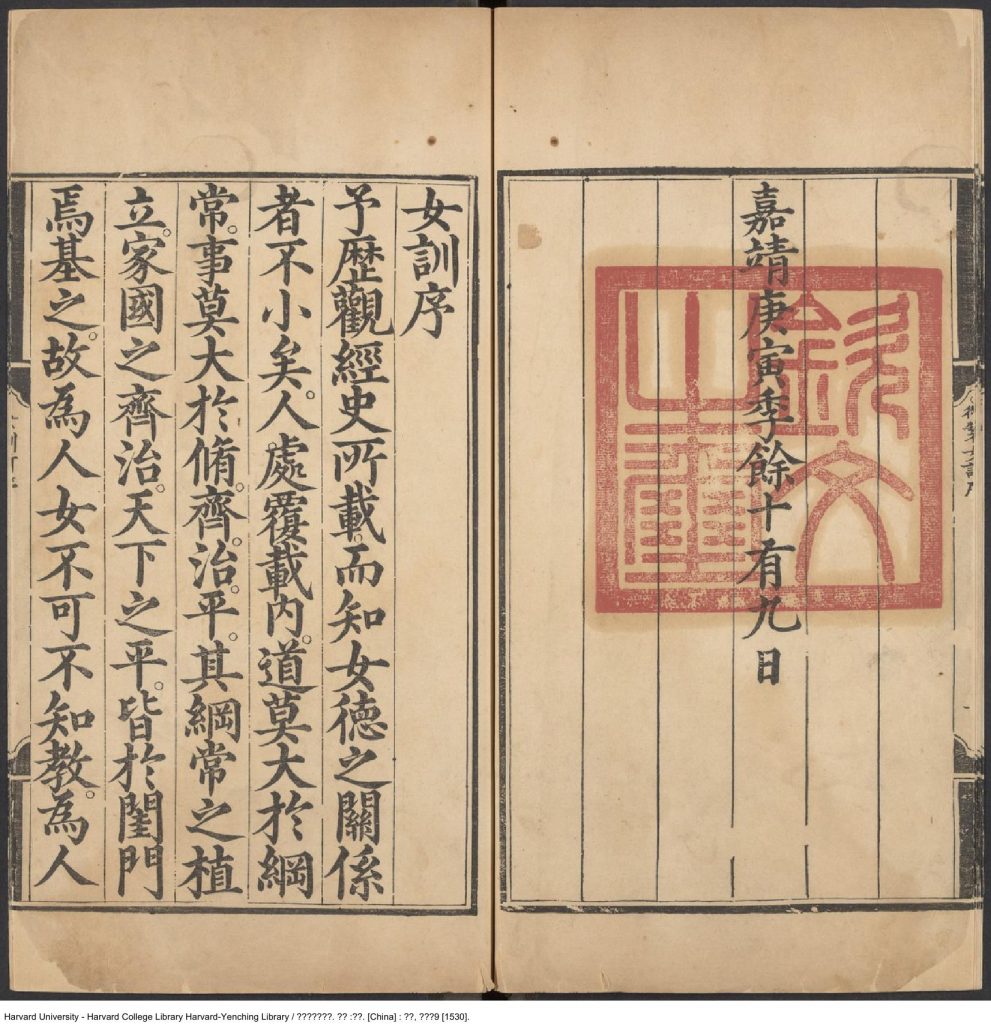 嘉靖庚寅季餘十有九日
欽文之璽
女訓序
予歷觀經史所載而知女德之關係
者不小矣。人處覆載內。道莫大於綱
常。事莫大於脩。齊。治。平。其綱常之植
立。家國之齊治。天下之平。皆於閨門
焉基之。故為人女不可不知教。為人
Harvard University - Harvard College Library Harvard-Yenching Library / ???????. ?? :??. [China] : ??, ???9 [1530].